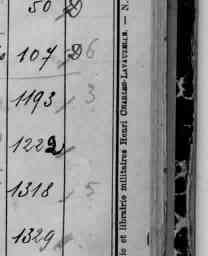 50 D
107 D 6
1193 3
1222
1318 5
1329
ie et librairie militaires Henri CHARLES-LAVAUZELLE. — N.